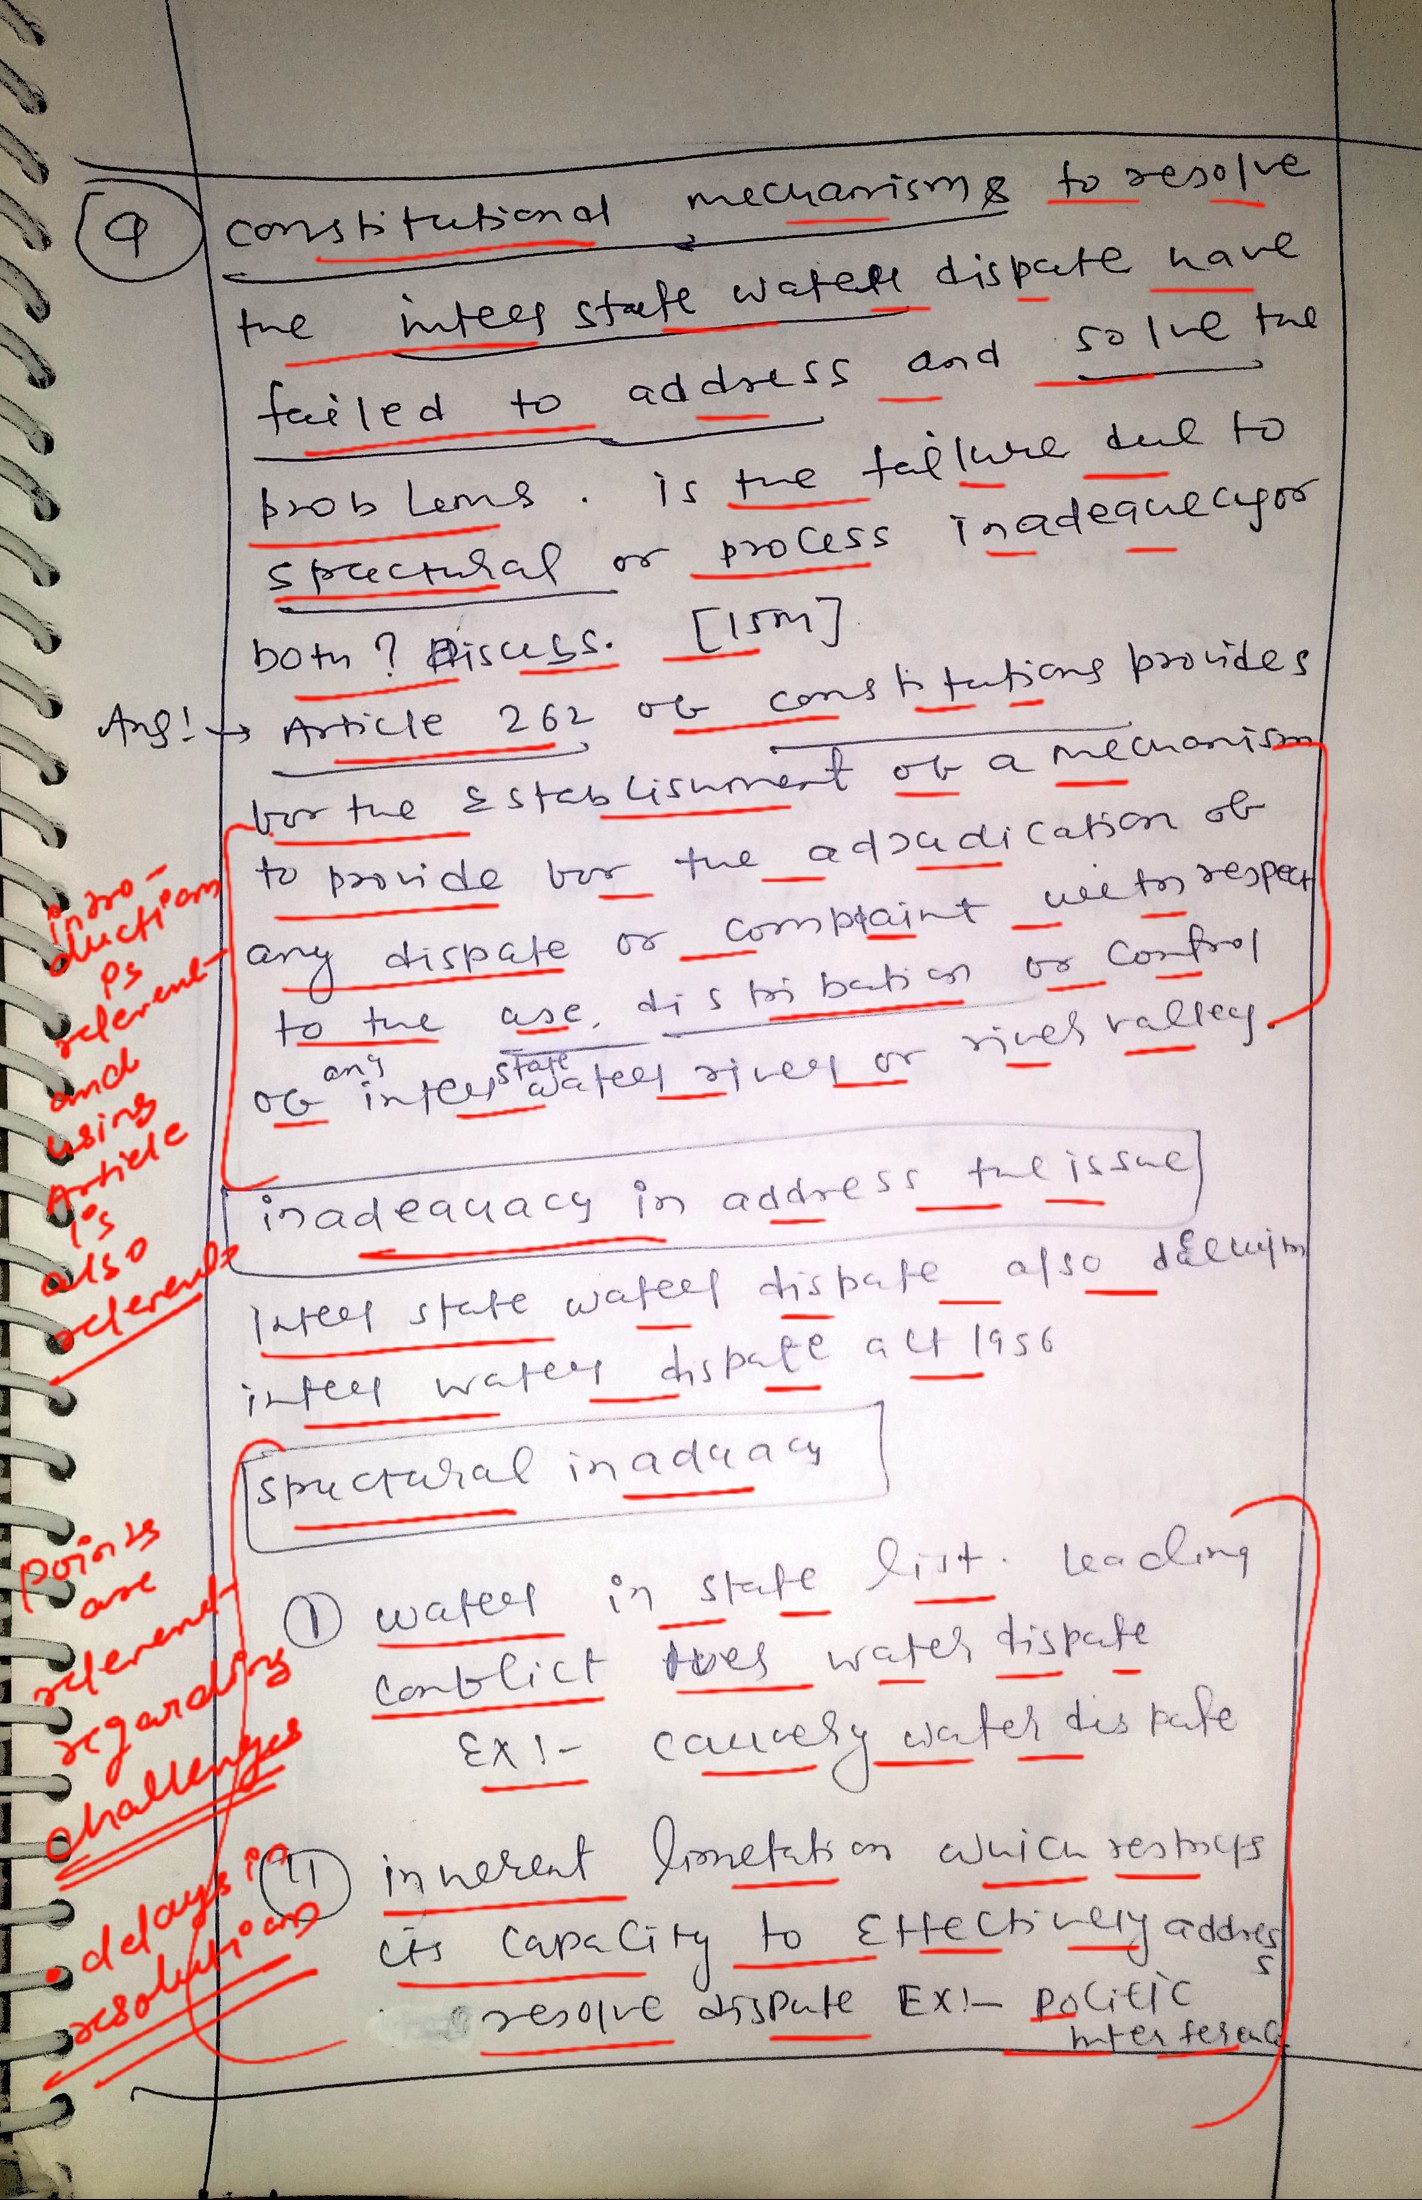 Q constitutional mechanisms to resolve
the inter state water dispute have
failed to address and solve the
problems. is the failure due to
structural or process inadequecy or
both? Discuss. [15m]
Ans:→ Article 262 of constitutions provides
for the Establishment of a mechanism
to provide for the adjudication of
any dispute or complaint with respect
to the use, distribution or control
of any inter state water river or river valley.
intro-
duction
is
relevent
and
using
Article
is
also
relevent
inadequacy in address the issue
Inter state water dispute also
inter water dispute act 1956
structural inaduacy
① water in state list. leading
conflict over water dispute
Ex:- cauvery water dispute
points
are
relevent
regarding
challenges
② inherent limetation which restricts
its capacity to Effectively address
resolve dispute Ex:- politic
interference
• delays in
resolution